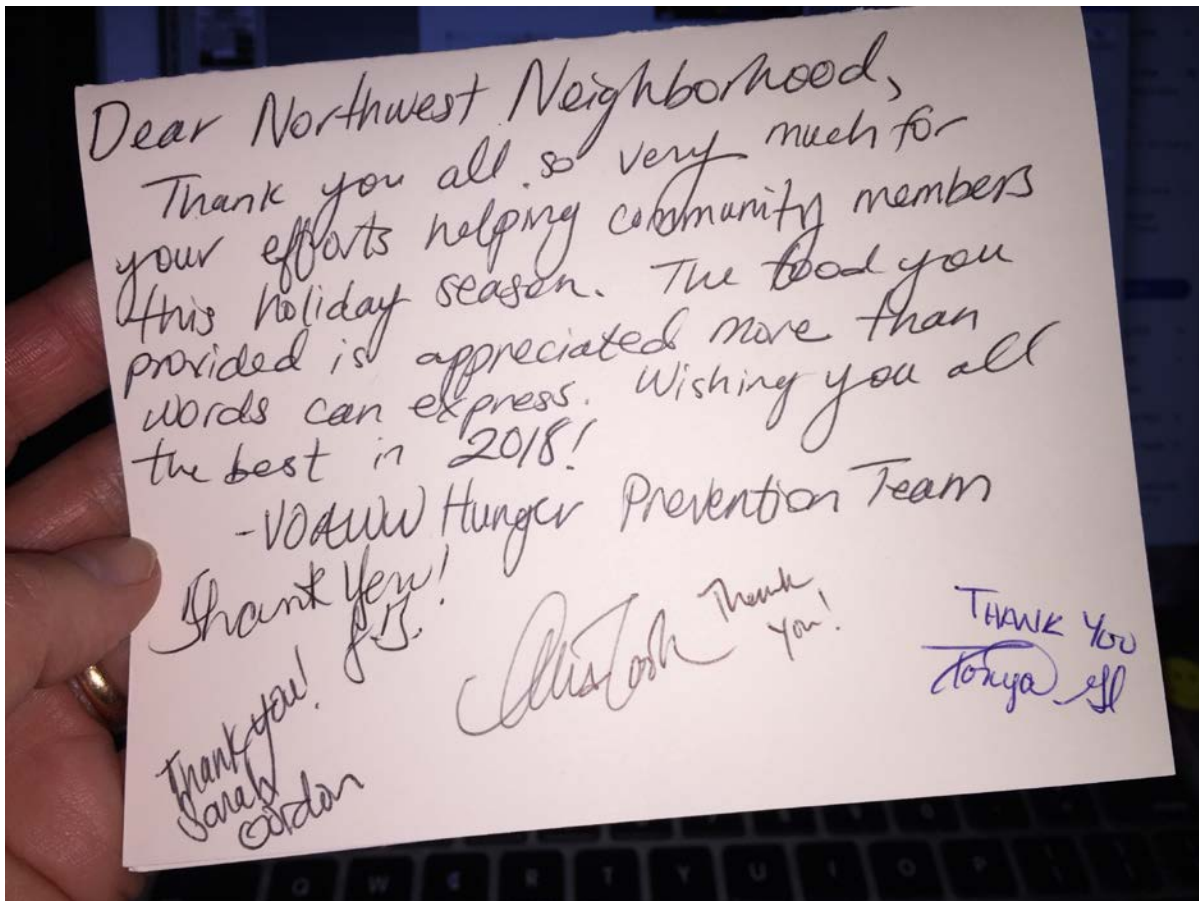 Dear Northwest Neighborhood,
Thank you all so very much for
your efforts helping community members
this holiday season. The food you
provided is appreciated more than
words can express. Wishing you all
the best in 2018!
-VOAWW Hunger Prevention Team
Thank You!
Thank you!
THANK YOU
Tonya
Thank you!
Sarah
Gordon
Q W E R T Y U I O P